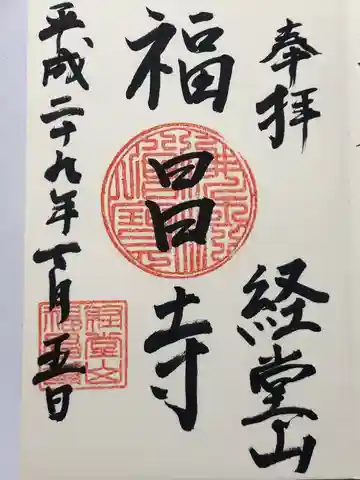 奉拝
経堂山
福昌寺
平成二十九年丁月五日